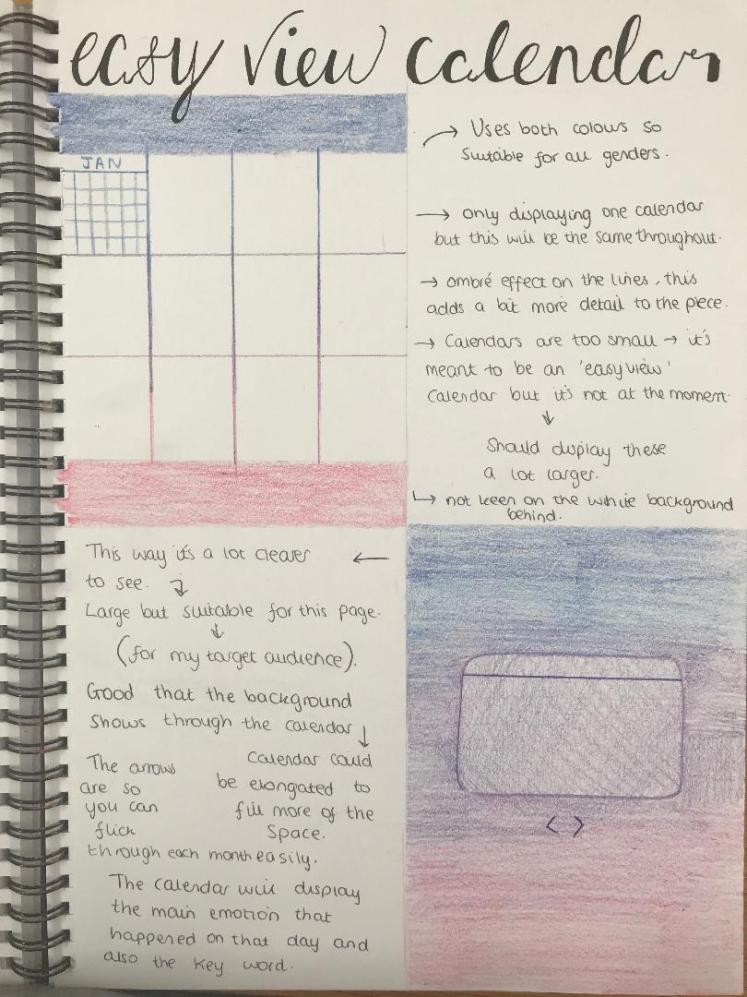 easy view calendar
JAN
→ Uses both colours so
suitable for all genders.
→ only displaying one calendar
but this will be the same throughout.
→ ombré effect on the lines, this
adds a bit more detail to the piece.
→ Calendars are too small → it's
meant to be an 'easy view'
calendar but it's not at the moment.
↓
Should display these
a lot larger.
↳ not keen on the white background
behind.
This way it's a lot clearer ←
to see. ↴
Large but suitable for this page.
↓
(for my target audience).
Good that the background
shows through the calendar ↓
The arrows
are so
you can
flick
through each month easily.
Calendar could
be elongated to
fill more of the
space.
The calendar will display
the main emotion that
happened on that day and
also the key word.
< >